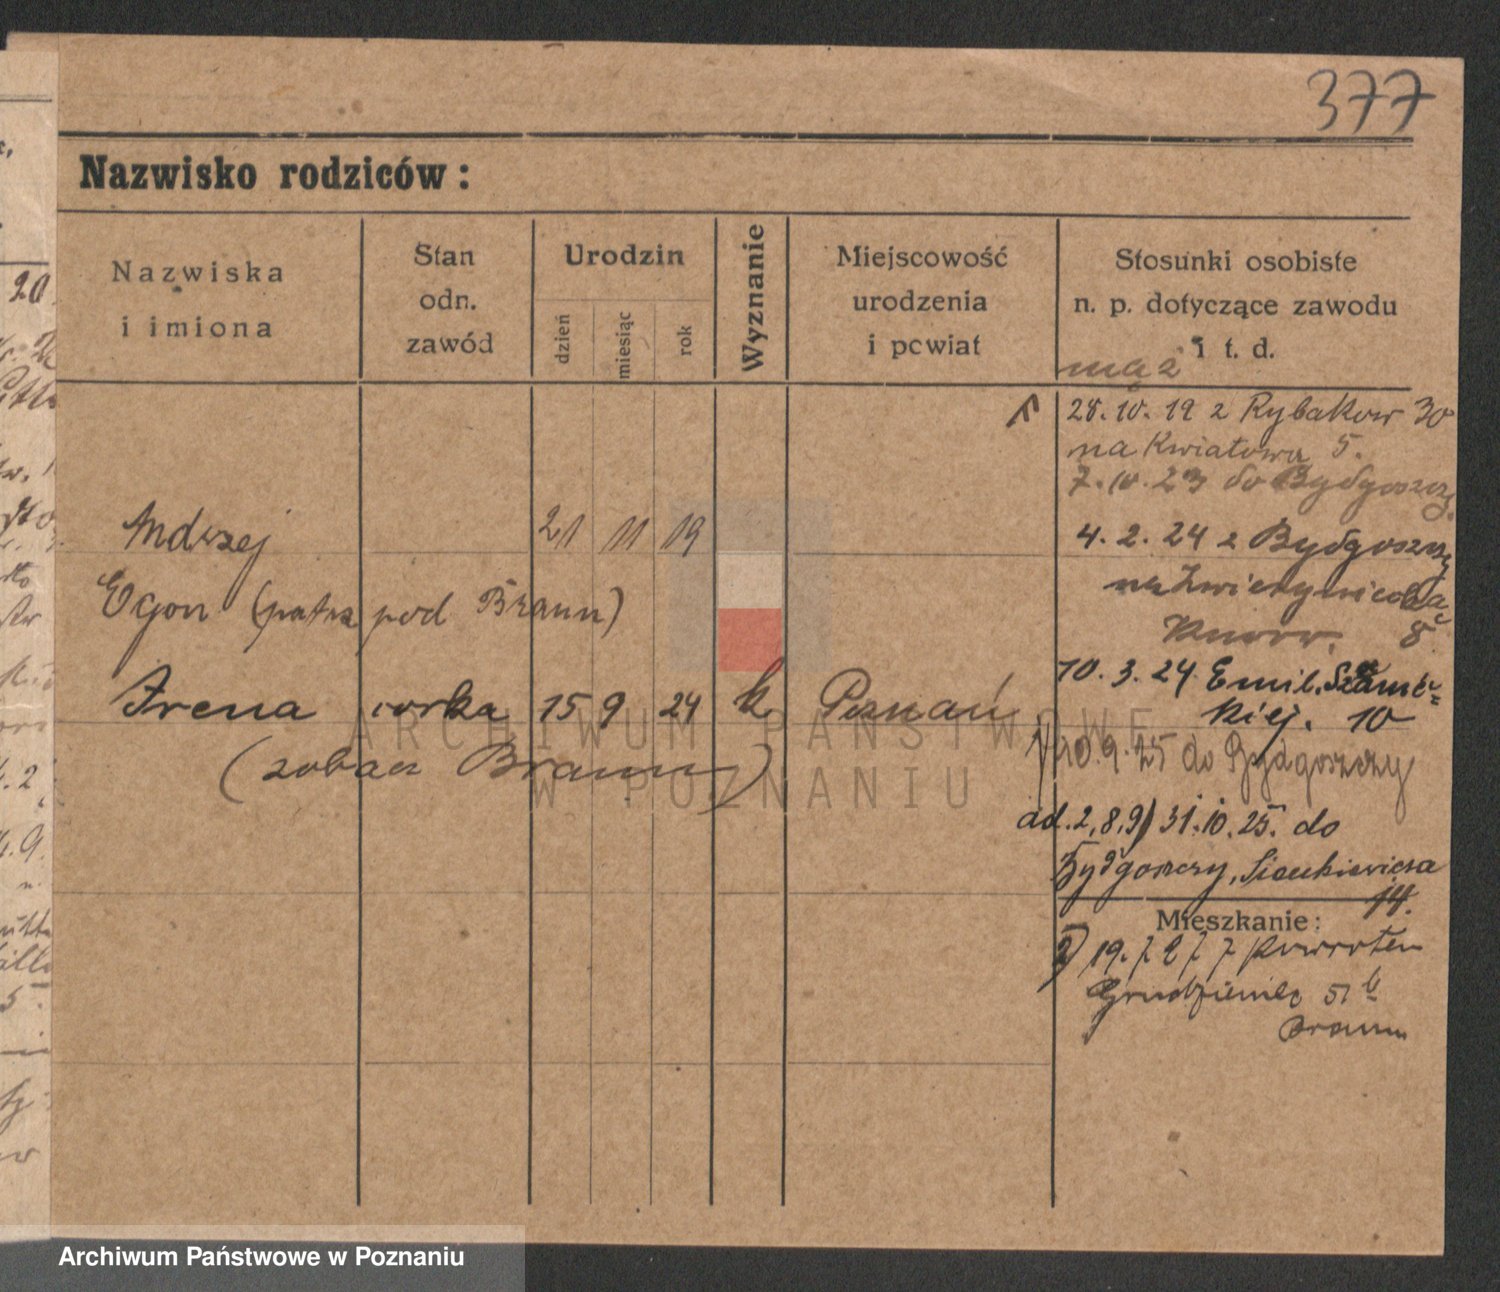 377
Nazwisko rodziców:
Nazwiska
i imiona
Stan
odn.
zawód
Urodzin
dzień
miesiąc
rok
Wyznanie
Miejscowość
urodzenia
i powiat
Stosunki osobiste
n. p. dotyczące zawodu
i t. d.
mąż
28. 10. 19 z Rybaków 30
na Kwiatową 5.
7. 10. 23 do Bydgoszczy
Andrzej 21 11 19
4. 2. 24 z Bydgoszczy
na Zwierzyniecką
8
Egon (patrz pod Braun)
10. 3. 24 Emil. Szanie=
kiej. 10
Irena córka 15 9 24 k. Poznań
10. 9. 25 do Bydgoszczy
(zobacz Braun)
ad. 2, 8, 9) 31. 10. 25. do
Bydgoszczy, Sienkiewicza
14.
Mieszkanie:
19. 7 27 powrotem
Grudzieniec 51 b
Braun
ARCHIWUM PAŃSTWOWE
W POZNANIU
Archiwum Państwowe w Poznaniu